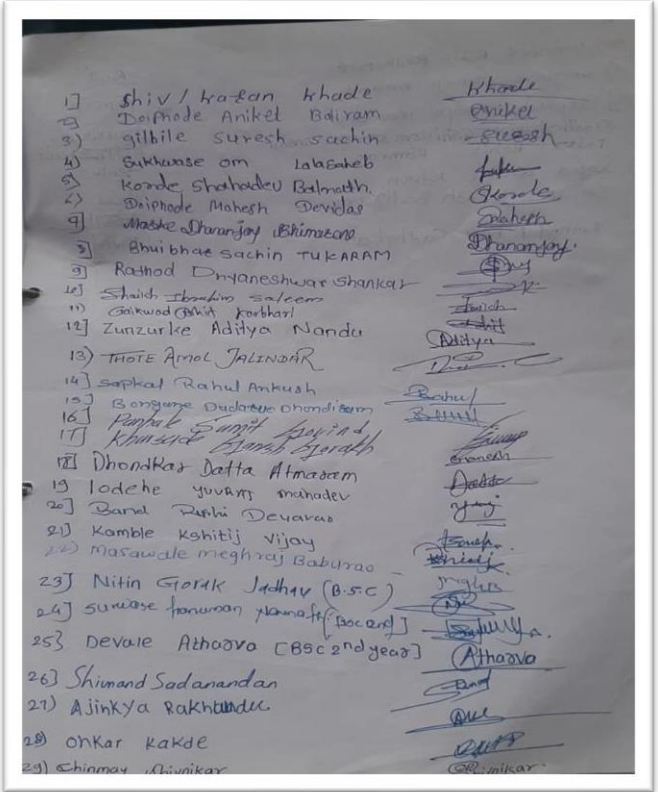 1] Shiv / hatan khade Khade
2] Doiphode Aniket Baliram Aniket
3) gilbile suresh sachin suresh
4) Sukhwase om Lalasaheb
5) Korde Shahadev Balnath. Korde
6) Doiphode Mahesh Devidas Mahesh
7] Maske Dhananjay Bhimarao Dhananjay.
8] Bhuibhar sachin TUKARAM
9] Rathod Dnyaneshwar Shankar
10] Shaikh Ibrahim Saleem
11) Gaikwad Rohit Karbhari
12] Zunzurke Aditya Nandu Aditya
13) THOTE AMOL JALINDAR
14] Sapkal Rahul Ankush Rahul
15] Bongane Dhondiram
16] Sumit Govind
17] Ganesh Gorakh Ganesh
18] Dhondkar Datta Atmaram Datta
19 lodche yuvraj mahadev
20] Band Rushi Devarao
21) Kamble Kshitij Vijay
22) Masawale meghraj Baburao
23] Nitin Gorak Jadhav (B.S.C)
24] Surwase hanuman
25} Devale Atharva [BSC 2nd year] Atharva
26] Shivnand Sadanandan
27) Ajinkya
28) Onkar Kakde
29) Chinmay Shivnikar